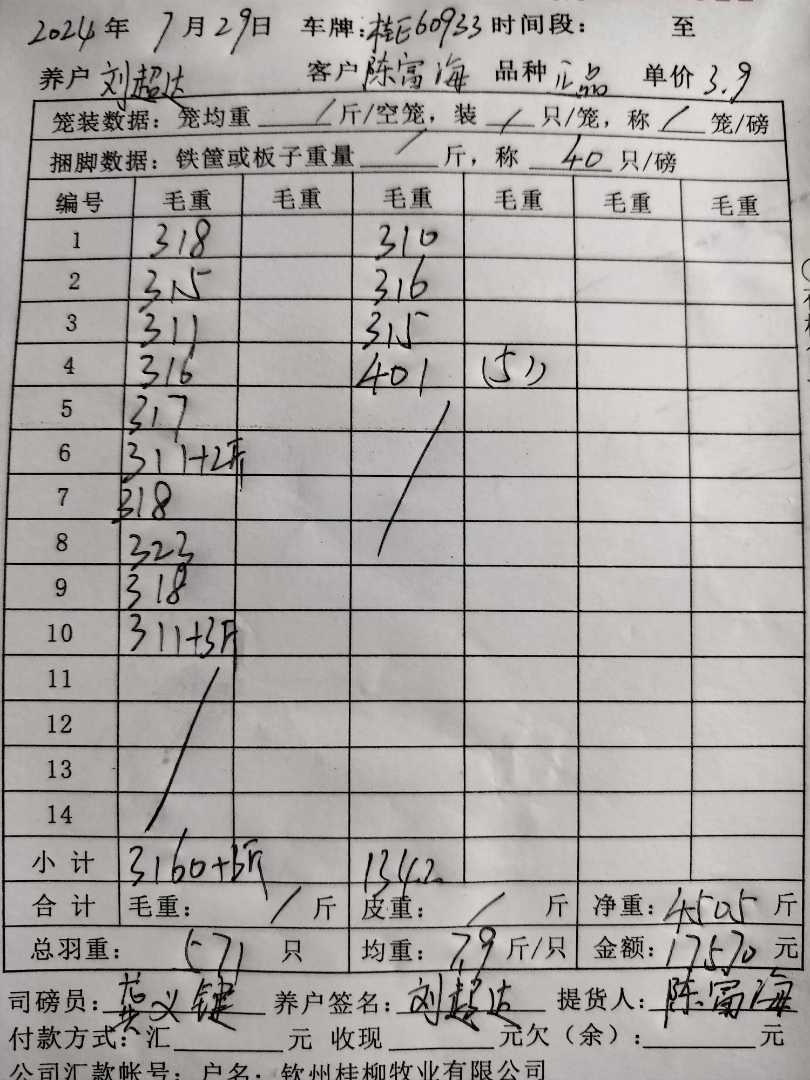 2024年 7月29日 车牌:桂E60933 时间段: 至
养户 刘超达 客户 陈富海 品种 正品 单价 3.9
笼装数据: 笼均重 / 斤/空笼, 装 / 只/笼, 称 / 笼/磅
捆脚数据: 铁筐或板子重量 / 斤, 称 40 只/磅
编号 毛重 毛重 毛重 毛重 毛重 毛重
1 318 310
2 315 316
3 311 315
4 316 401 (51)
5 317
6 311+2斤
7 318
8 323
9 318
10 311+3斤
11
12
13
14
小 计 3160+3斤 1342
合 计 毛重: / 斤 皮重: / 斤 净重: 4505 斤
总羽重: 571 只 均重: 7.9 斤/只 金额: 17570 元
司磅员: 义键 养户签名: 刘超达 提货人: 陈富海
付款方式: 汇 元 收现 元欠(余): 元
公司汇款帐号: 户名: 钦州桂柳牧业有限公司